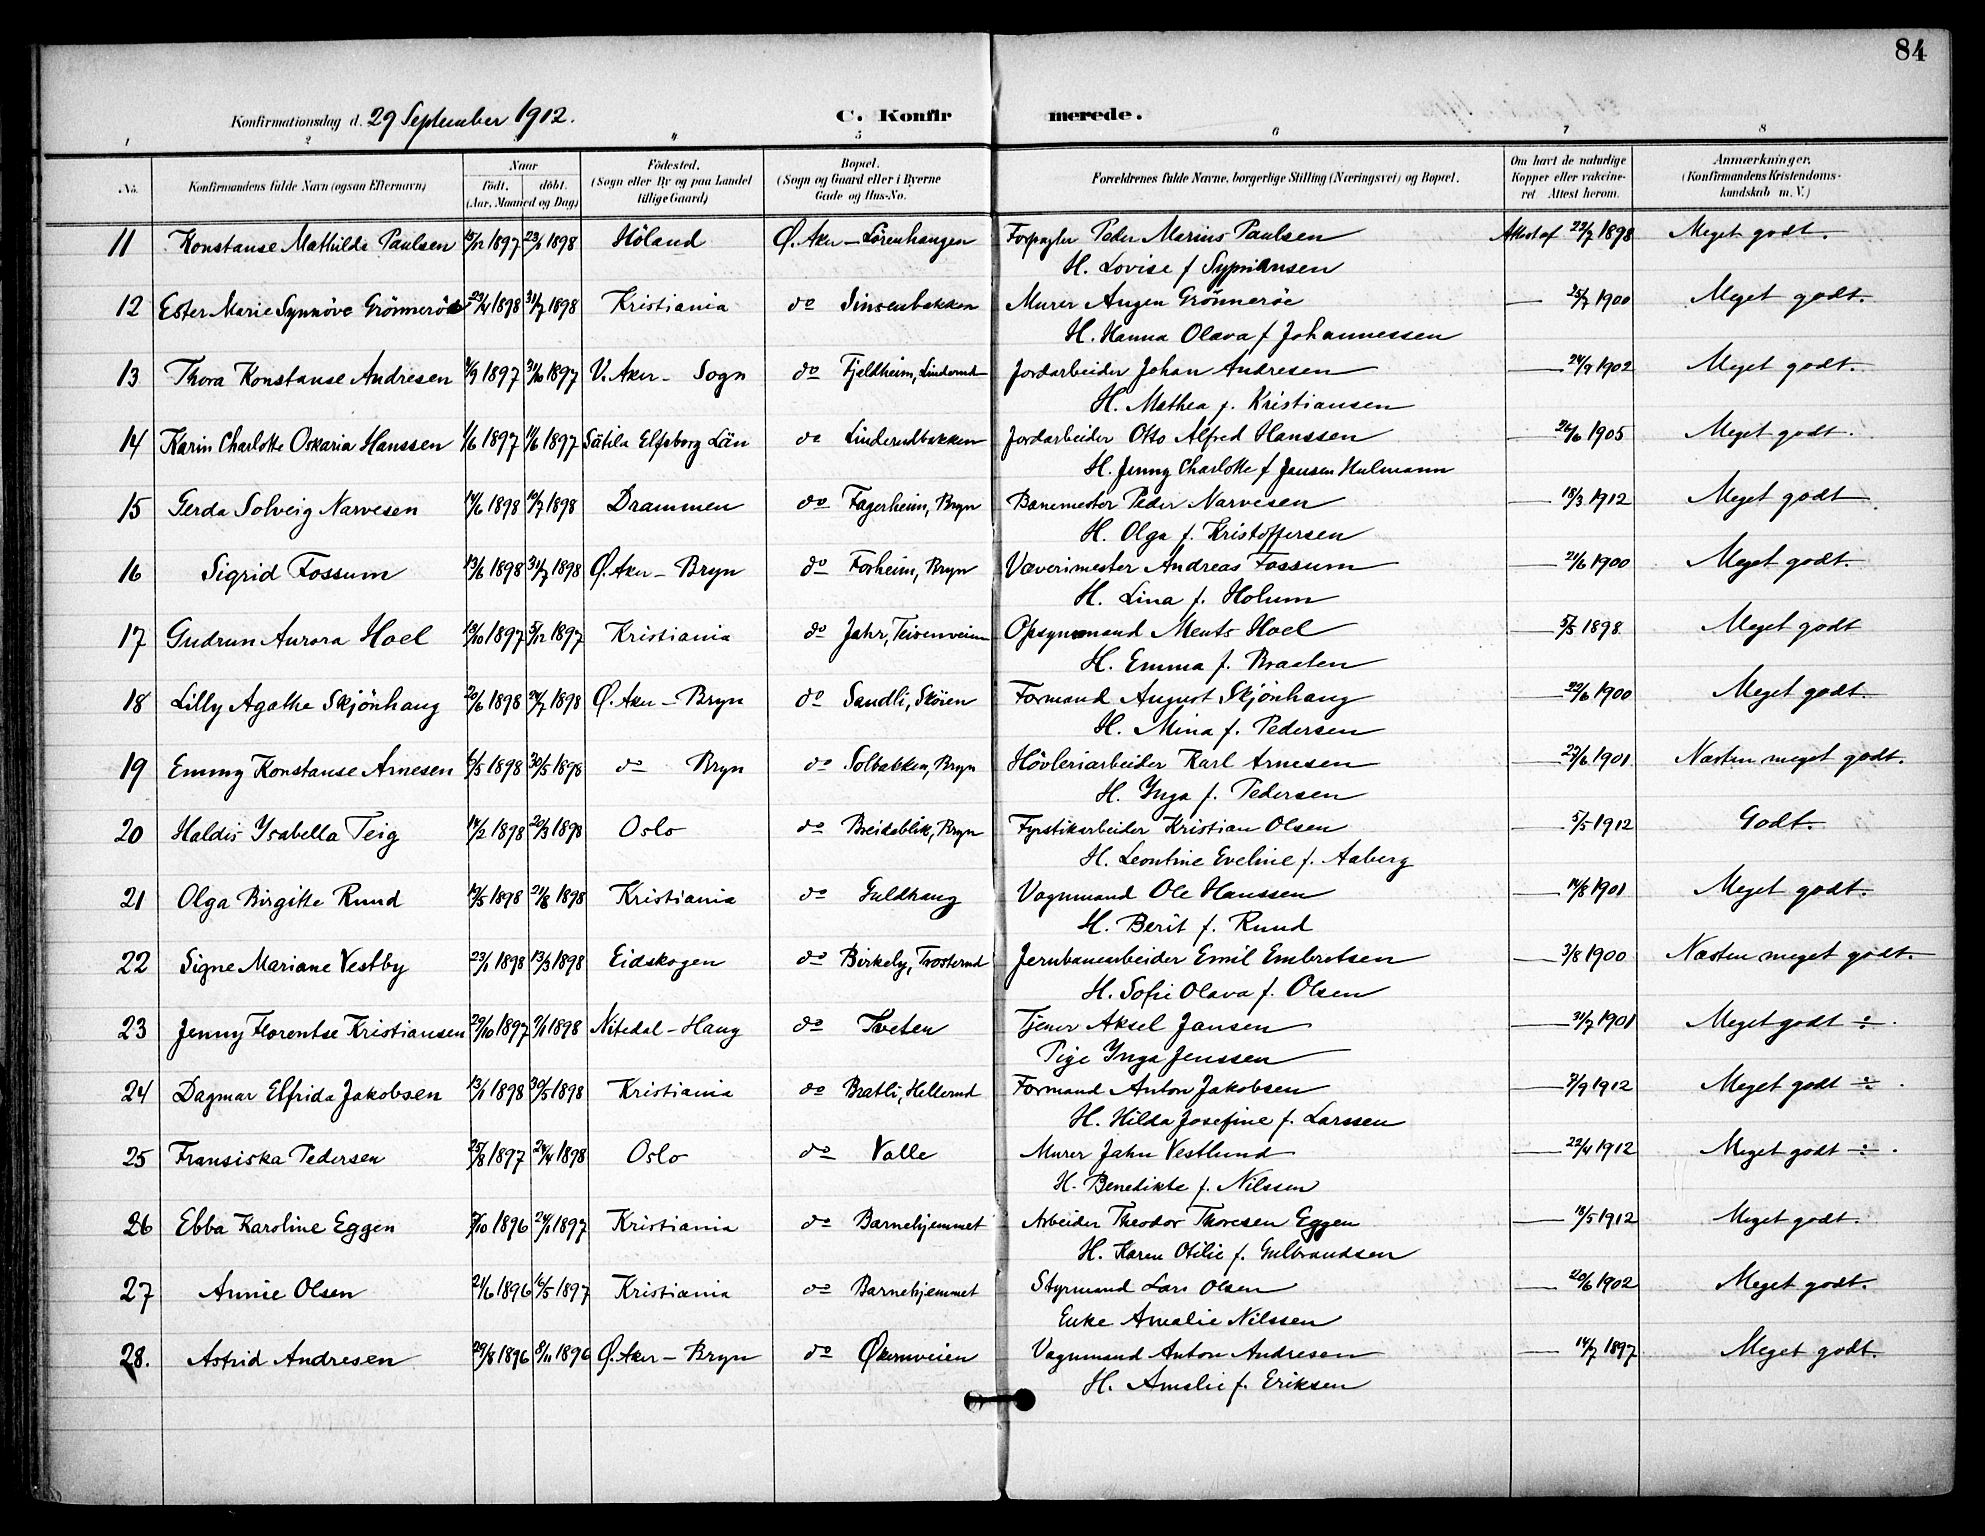 84
Konfirmationsdag d. 29 September 1912.
C. Konfirmerede.
1 2 3 4 5 6 7 8
No. Konfirmandens fulde Navn (ogsaa Efternavn) Naar födt. döbt. (Aar, Maaned og Dag) Födested. (Sogn eller By og paa Landet tillige Gaard) Bopæl. (Sogn og Gaard eller i Byerne Gade og Hus-No. Forældrenes fulde Navne, borgerlige Stilling (Næringsvei) og Bopæl. Om havt de naturlige Kopper eller vakcineret. Attest herom. Anmærkninger. (Konfirmandens Kristendomskundskab m. V.)
11 Konstanse Mathilde Paulsen 15/12 1897 23/1 1898 Höland Ø. Aker - Lörenhaugen Forpagter Peder Marius Paulsen Attest af 22/7 1898 Meget godt.
H. Lovise f. Sypriansen
12 Ester Marie Synnöve Grönneröe 23/4 1898 31/7 1898 Kristiania do Sinsenbakken Murer Augen Grönneröe — 25/7 1900 Meget godt.
H. Hanna Olava f. Johannessen
13 Thora Konstanse Andresen 1897 31/10 1897 V. Aker - Sogn do Fjeldheim, Linderud Jordarbeider Johan Andresen — 24/9 1902 Meget godt.
H. Mathea f. Kristiansen
14 Karin Charlotte Oskaria Hanssen 1/6 1897 11/6 1897 Sätila Elfsborg Län do Linderudbakken Jordarbeider Otto Alfred Hanssen — 26/6 1905 Meget godt.
H. Jenny Charlotte f. Jansen Hulmann
15 Gerda Solveig Narvesen 14/6 1898 10/7 1898 Drammen do Fagerheim, Bryn Banemester Peder Narvesen — 18/3 1912 Meget godt
H. Olga f. Kristoffersen
16 Sigrid Fossum 13/6 1898 31/7 1898 Ø. Aker - Bryn do Forheim, Bryn Væverimester Andreas Fossum — 21/6 1900 Meget godt.
H. Lina f. Holum
17 Gudrun Aurora Hoel 13/10 1897 5/12 1897 Kristiania do Jahr, Teisenveien Opsynsmand Ments Hoel — 5/5 1898 Meget godt
H. Emma f. Braaten
18 Lilly Agathe Skjönhaug 20/6 1898 24/7 1898 Ø. Aker - Bryn do Sandli, Skören Formand August Skjönhaug — 22/6 1900 Meget godt.
H. Mina f. Pedersen
19 Emmy Konstanse Arnesen 6/5 1898 30/5 1898 do Bryn do Solbakken, Bryn Hövleriarbeider Karl Arnesen — 27/6 1901 Næsten meget godt.
H. Inga f. Pedersen
20 Haldis Ysabella Teig 14/2 1898 20/3 1898 Oslo do Breidablik, Bryn Fyrstikarbeider Kristian Olsen — 5/5 1912 Godt.
H. Leontine Eveline f. Aaberg
21 Olga Birgitte Rund 19/5 1898 21/8 1898 Kristiania do Guldhaug Vognmand Ole Hanssen — 14/8 1901 Meget godt.
H. Berit f. Rund
22 Signe Mariane Vestby 23/1 1898 13/3 1898 Eidskogen do Birkely, Trosterud Jernbanearbeider Emil Embretsen — 3/8 1900 Næsten meget godt.
H. Sofie Olava f. Olsen
23 Jenny Florentse Kristiansen 29/10 1897 9/1 1898 Nitedal - Haug do Tveten Tjener Aksel Jansen — 31/7 1901 Meget godt ÷.
Pige Inga Jenssen
24 Dagmar Elfrida Jakobsen 13/1 1898 30/5 1898 Kristiania do Bratli, Hellerud Formand Anton Jakobsen — 7/9 1912 Meget godt ÷.
H. Hilda Josefine f. Larssen
25 Fransiska Pedersen 25/8 1897 24/4 1898 Oslo do Valle Murer Jahn Vestlund — 22/4 1912 Meget godt ÷.
H. Benedikte f. Nilssen
26 Ebba Karoline Eggen 7/10 1896 24/1 1897 Kristiania do Barnehjemmet Arbeider Theodor Thoresen Eggen — 13/5 1912 Meget godt.
H. Karen Otilie f. Gulbrandsen
27 Annie Olsen 21/6 1896 16/5 1897 Kristiania do Barnehjemmet Styrmand Lars Olsen — 20/6 1902 Meget godt.
Enke Amalie Nilssen
28. Astrid Andresen 29/8 1896 8/11 1896 Ø. Aker - Bryn do Økernveien Vognmand Anton Andresen — 14/7 1897 Meget godt.
H. Amalie f. Eriksen